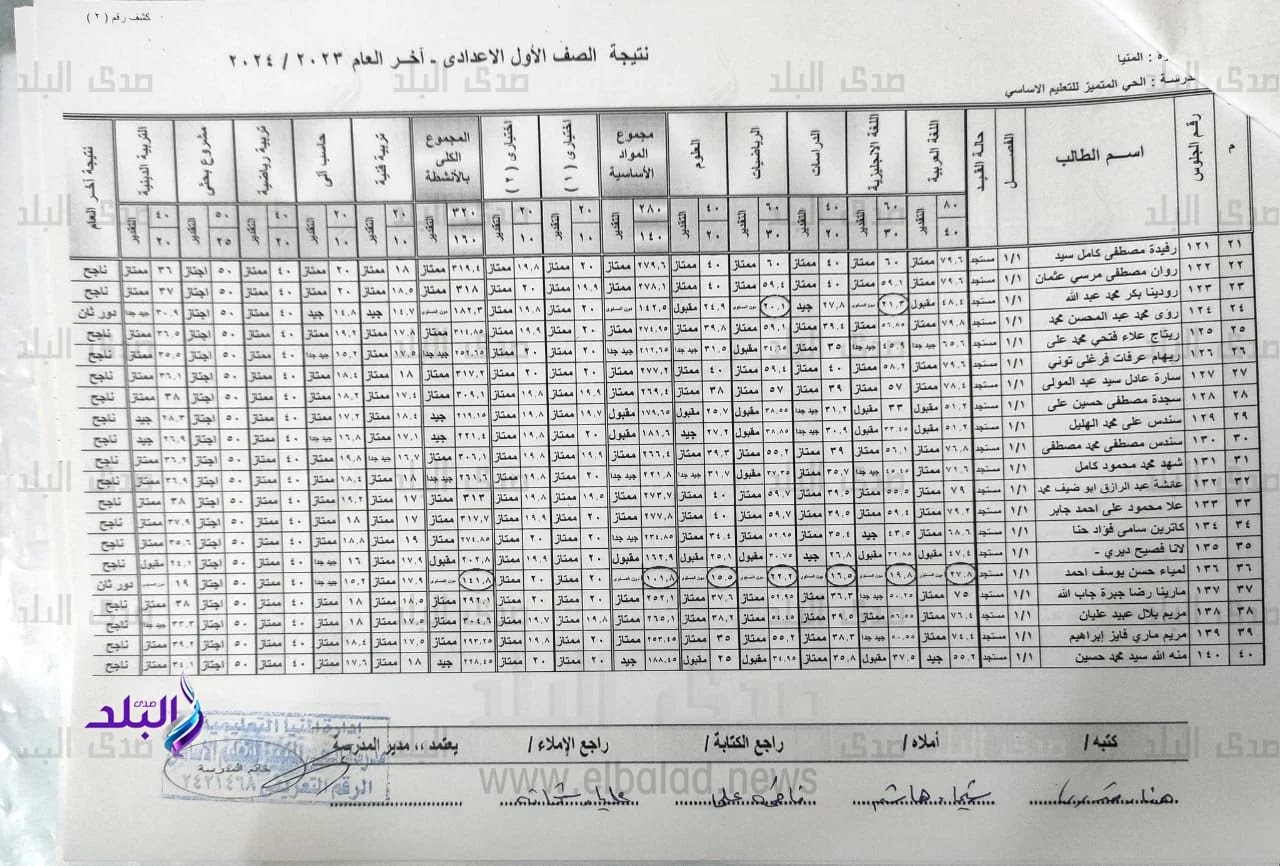 كشف رقم ( ٢ )
نتيجة الصف الأول الاعدادى - آخر العام ٢٠٢٣ / ٢٠٢٤
رة : المنيا
درسة : الحي المتميز للتعليم الاساسي
م رقم الجلوس اسم الطالب الفصل حالة القيد اللغة العربية اللغة الانجليزية الدراسات الرياضيات العلوم مجموع المواد الأساسية اختيارى (١) اختيارى (٢) المجموع الكلى بالأنشطة تربية فنية حاسب آلى تربية رياضية مشروع بحثى التربية الدينية نتيجة آخر العام
٨٠ التقدير ٦٠ التقدير ٤٠ التقدير ٦٠ التقدير ٤٠ التقدير ٢٨٠ التقدير ٢٠ التقدير ٢٠ التقدير ٣٢٠ التقدير ٢٠ التقدير ٢٠ التقدير ٤٠ التقدير ٥٠ التقدير ٤٠ التقدير
٤٠ ٣٠ ٢٠ ٣٠ ٢٠ ١٤٠ ١٠ ١٠ ١٦٠ ١٠ ١٠ ٢٠ ٢٥ ٢٠
٢١ ١٢١ رفيدة مصطفى كامل سيد ١/١ مستجد ٧٩,٦ ممتاز ٦٠ ممتاز ٤٠ ممتاز ٦٠ ممتاز ٤٠ ممتاز ٢٧٩,٦ ممتاز ٢٠ ممتاز ١٩,٨ ممتاز ٣١٩,٤ ممتاز ١٨ ممتاز ٢٠ ممتاز ٤٠ ممتاز ٥٠ اجتاز ٣٦ ممتاز ناجح
٢٢ ١٢٢ روان مصطفى مرسي عثمان ١/١ مستجد ٧٩,٦ ممتاز ٥٩,١ ممتاز ٤٠ ممتاز ٥٩,٤ ممتاز ٤٠ ممتاز ٢٧٨,١ ممتاز ١٩,٩ ممتاز ٢٠ ممتاز ٣١٨ ممتاز ١٨,٥ ممتاز ٢٠ ممتاز ٤٠ ممتاز ٥٠ اجتاز ٣٧ ممتاز ناجح
٢٣ ١٢٣ رودينا بكر محمد عبد الله ١/١ مستجد ٤٨,٤ مقبول ٢١,٣ دون المستوى ٢٧,٨ جيد ٢٠,١ دون المستوى ٢٤,٩ مقبول ١٤٢,٥ دون المستوى ٢٠ ممتاز ١٩,٨ ممتاز ١٨٢,٣ دون المستوى ١٤,٧ جيد ١٤,٨ جيد ٤٠ ممتاز ٥٠ اجتاز ٣٠,٩ جيد جدا دور ثان
٢٤ ١٢٤ رؤى محمد عبد المحسن محمد ١/١ مستجد ٧٩,٨ ممتاز ٥٦,٨٥ ممتاز ٣٩,٤ ممتاز ٥٩,١ ممتاز ٣٩,٨ ممتاز ٢٧٤,٩٥ ممتاز ٢٠ ممتاز ممتاز ٣١٤,٨٥ ممتاز ١٧,٨ ممتاز ١٩,٢ ممتاز ٤٠ ممتاز ٥٠ اجتاز ٣٦,٥ ممتاز ناجح
٢٥ ١٢٥ ريتاج علاء فتحي محمد على ١/١ مستجد ٦٥,٦ جيد جدا ٤٥,٩ جيد جدا ٣٥ ممتاز ٣٤,٦٥ مقبول ٣١,٥ جيد جدا ٢١٢,٦٥ جيد جدا ٢٠ ممتاز ٢٠ ممتاز ٢٥٢,٦٥ جيد جدا ١٧,٥ ممتاز ١٥,٢ جيد جدا ٤٠ ممتاز ٥٠ اجتاز ٣٥,٥ ممتاز ناجح
٢٦ ١٢٦ ريهام عرفات فرغلى توني ١/١ مستجد ٧٩,٦ ممتاز ٥٨,٢ ممتاز ٤٠ ممتاز ٥٩,٤ ممتاز ٤٠ ممتاز ٢٧٧,٢ ممتاز ٢٠ ممتاز ٢٠ ممتاز ٣١٧,٢ ممتاز ١٨ ممتاز ١٨,٤ ممتاز ٤٠ ممتاز ٥٠ اجتاز ٣٦,١ ممتاز ناجح
٢٧ ١٢٧ سارة عادل سيد عبد المولى ١/١ مستجد ٧٨,٤ ممتاز ٥٧ ممتاز ٣٩ ممتاز ٥٧ ممتاز ٣٨ ممتاز ٢٦٩,٤ ممتاز ١٩,٩ ممتاز ١٩,٨ ممتاز ٣٠٩,١ ممتاز ١٧,٤ ممتاز ١٨,٢ ممتاز ٤٠ ممتاز ٥٠ اجتاز ٣٨ ممتاز ناجح
٢٨ ١٢٨ سجدة مصطفى حسين على ١/١ مستجد ٥١,٢ مقبول ٣٣ مقبول ٣١,٢ جيد جدا ٣٨,٥٥ مقبول ٢٥,٧ مقبول ١٧٩,٦٥ مقبول ١٩,٧ ممتاز ١٩,٨ ممتاز ٢١٩,١٥ جيد ١٨,٤ ممتاز ١٧,٢ ممتاز ٤٠ ممتاز ٥٠ اجتاز ٢٨,٣ جيد ناجح
٢٩ ١٢٩ سندس على محمد الهليل ١/١ مستجد ٥١,٢ مقبول ٣٣,٤٥ مقبول ٣٠,٩ جيد جدا ٣٨,٨٥ مقبول ٢٧,٢ جيد ١٨١,٦ مقبول ٢٠ ممتاز ١٩,٨ ممتاز ٢٢١,٤ جيد ١٧,١ ممتاز ١٦,٨ جيد جدا ٤٠ ممتاز ٥٠ اجتاز ٢٦,٩ جيد ناجح
٣٠ ١٣٠ سندس مصطفى محمد مصطفى ١/١ مستجد ٧٦,٨ ممتاز ٥٦,١ ممتاز ٣٩ ممتاز ٥٥,٢ ممتاز ٣٩,٣ ممتاز ٢٦٦,٤ ممتاز ١٩,٩ ممتاز ١٩,٨ ممتاز ٣٠٦,١ ممتاز ١٦,٧ جيد جدا ١٩,٨ ممتاز ٤٠ ممتاز ٥٠ اجتاز ٣٦,٢ ممتاز ناجح
٣١ ١٣١ شهد محمد محمود كامل ١/١ مستجد ٧١,٦ ممتاز ٤٥,٤٥ جيد جدا ٣٥,٧ ممتاز ٣٧,٣٥ مقبول ٣١,٧ جيد جدا ٢٢١,٨ جيد جدا ٢٠ ممتاز ١٩,٨ ممتاز جيد جدا ١٨ ممتاز ١٨,٤ ممتاز ٤٠ ممتاز ٥٠ اجتاز ٣٦,٩ ممتاز ناجح
٣٢ ١٣٢ عائشة عبد الرازق ابو ضيف محمد ١/١ مستجد ٧٩ ممتاز ٥٥,٥ ممتاز ٣٩,٥ ممتاز ٥٩,٧ ممتاز ٤٠ ممتاز ٢٧٣,٧ ممتاز ١٩,٥ ممتاز ١٩,٨ ممتاز ٣١٣ ممتاز ١٧ ممتاز ١٩,٢ ممتاز ٤٠ ممتاز ٥٠ اجتاز ٣٨ ممتاز ناجح
٣٣ ١٣٣ علا محمود على احمد جابر ١/١ مستجد ٧٩,٢ ممتاز ٥٩,٤ ممتاز ٣٩,٥ ممتاز ٥٩,٧ ممتاز ٤٠ ممتاز ٢٧٧,٨ ممتاز ٢٠ ممتاز ١٩,٩ ممتاز ٣١٧,٧ ممتاز ١٧ ممتاز ١٨ ممتاز ٤٠ ممتاز ٥٠ اجتاز ٣٧,٩ ممتاز ناجح
٣٤ ١٣٤ كاترين سامى فؤاد حنا ١/١ مستجد ٦٨,٦ ممتاز ٤٣,٥ جيد ٣٥,٤ ممتاز ٥٢,٩٥ ممتاز ٣٤,٤ ممتاز ٢٣٤,٨٥ ممتاز ٢٠ ممتاز ٢٠ ممتاز ٢٧٤,٨٥ ممتاز ١٩ ممتاز ١٨,٨ ممتاز ٤٠ ممتاز ٥٠ اجتاز ٣٥,٦ ممتاز ناجح
٣٥ ١٣٥ لانا فصيح ديري - ١/١ مستجد ٤٧,٤ مقبول ٣٢,٨٥ مقبول ٢٦,٨ جيد ٣٠,٧٥ مقبول ٢٥,١ مقبول ١٦٢,٩ مقبول ٢٠ ممتاز ١٩,٩ ممتاز ٢٠٢,٨ مقبول ١٧,٩ ممتاز ١٦ جيد جدا ٤٠ ممتاز ٥٠ اجتاز ٢٤,١ مقبول ناجح
٣٦ ١٣٦ لمياء حسن يوسف احمد ١/١ مستجد ٢٧,٨ دون المستوى ١٩,٨ دون المستوى ١٦,٥ دون المستوى ٢٢,٢ دون المستوى ١٥,٥ دون المستوى ١٠١,٨ دون المستوى ٢٠ ممتاز ٢٠ ممتاز ١٤١,٨ دون المستوى ١٧,٩ ممتاز ١٥,٢ جيد جدا ٤٠ ممتاز ٥٠ اجتاز ١٩ دون المستوى دور ثان
٣٧ ١٣٧ مارينا رضا جبرة جاب الله ١/١ مستجد ٧٥ ممتاز ٥٠,٢٥ جيد جدا ٣٦,٣ ممتاز ٥٢,٩٥ ممتاز ٣٧,٦ ممتاز ٢٥٢,١ ممتاز ٢٠ ممتاز ٢٠ ممتاز ممتاز ١٨,٥ ممتاز ١٨ ممتاز ٤٠ ممتاز ٥٠ اجتاز ٣٨ ممتاز ناجح
٣٨ ١٣٨ مريم بلال عبيد عليان ١/١ مستجد ٧٦,٤ ممتاز ٥٦,٥٥ ممتاز ٣٩,٥ ممتاز ٥٤,٤٥ ممتاز ٣٨,٢ ممتاز ٢٦٥,١ ممتاز ١٩,٨ ممتاز ١٩,٧ ممتاز ٣٠٤,٦ ممتاز ١٧,٥ ممتاز ١٨ ممتاز ٤٠ ممتاز ٥٠ اجتاز ٣٣,٣ جيد جدا ناجح
٣٩ ١٣٩ مريم ماري فايز إبراهيم ١/١ مستجد ٧٤,٤ ممتاز ٥٠,٥٥ جيد جدا ٣٨,٣ ممتاز ٥٥,٢ ممتاز ٣٥ ممتاز ٢٥٣,٤٥ ممتاز ٢٠ ممتاز ١٩,٨ ممتاز ٢٩٣,٢٥ ممتاز ١٧,٥ ممتاز ١٨,٤ ممتاز ٤٠ ممتاز ٥٠ اجتاز ٣٩,٢ ممتاز ناجح
٤٠ ١٤٠ منه الله سيد محمد حسين ١/١ مستجد ٥٥,٢ جيد ٣٧,٥ مقبول ٣٥,٨ ممتاز ٣٤,٩٥ مقبول ٢٥ مقبول ١٨٨,٤٥ جيد ٢٠ ممتاز ٢٠ ممتاز ٢٢٨,٤٥ جيد ١٨ ممتاز ١٧,٦ ممتاز ٤٠ ممتاز ٥٠ اجتاز ٣٤,١ ممتاز ناجح
كتبه / أملاه / راجع الكتابة / راجع الإملاء / يعتمد ،، مدير المدرسة
شيماء هاشم
إدارة المنيا التعليمية
خاتم المدرسة
٢٤٢١٤٦٨
صدى البلد
www.elbalad.news